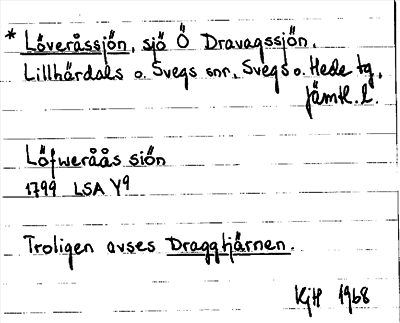 * Löveråssjön, sjö Ö Dravagssjön.
Lillhärdals o. Svegs snr, Svegs o. Hede tg,
Jämtl. l.
Löfweråås siön
1799 LSA Y9
Troligen avses Draggtjärnen.
KjH 1968